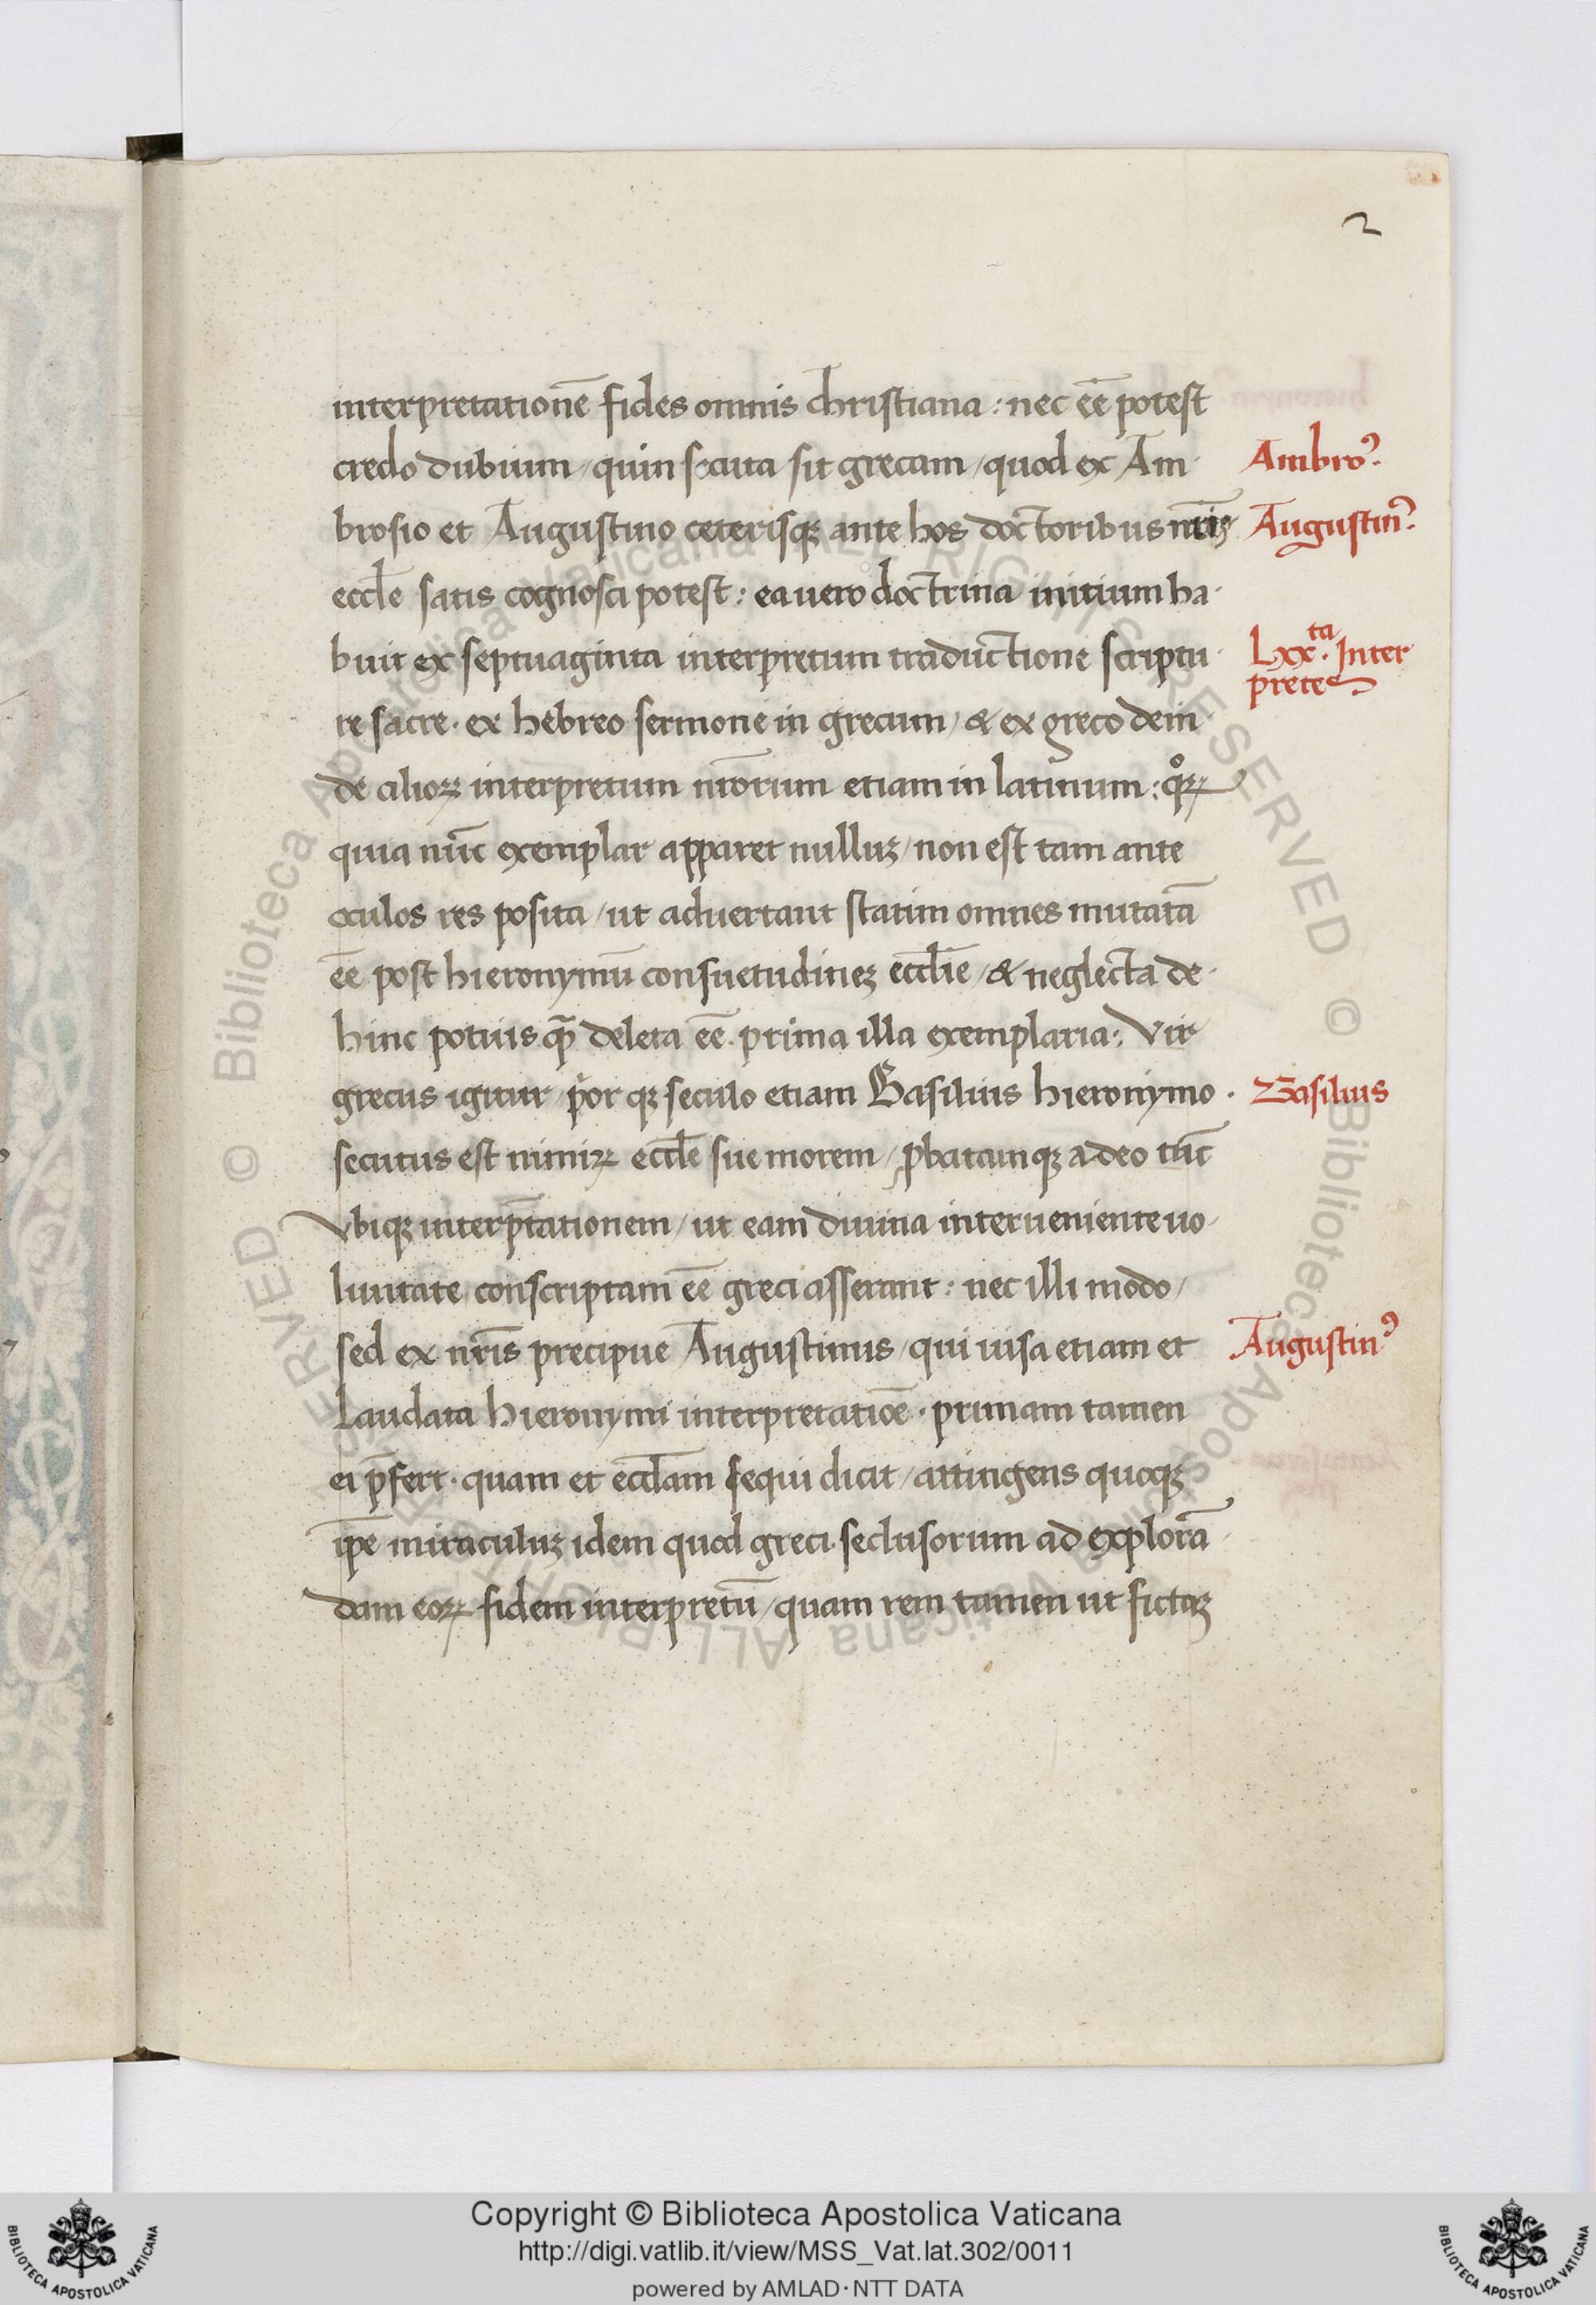 2
interpretationē fides omnis christiana : nec eē potest
credo dubium / quin secuta sit grecam / quod ex Am
Ambro⁹.
brosio et Augustino ceterisqꝫ ante hos doctoribus nr̄is
Augustin⁹.
eccl̄e satis cognosci potest : ea uero doctrina initium ha
buit ex septuaginta interpretum traductione scriptu
Lxx.ta Inter
pretes
re sacre . ex hebreo sermone in grecum / & ex greco dein
de alioꝝ interpretum nr̄orum etiam in latinum : qͦꝝ
quia nūc exemplar apparet nulluꝫ / non est tam ante
oculos res posita / ut aduertant statim omnes mutatā
eē post hieronymū consuetudineꝫ eccl̄ie / & neglecta de
hinc potius qꝫ̄ deleta eē . prima illa exemplaria : Vir
grecus igitur / pͥor qꝫ seculo etiam Basilius hieronymo .
Basilius
secutus est nimiꝝ eccl̄e sue morem / ꝓbatamqꝫ adeo tūc
Vbiqꝫ interp̄tationem / ut eam diuina interueniente uo
luntate conscriptam eē greci asserant : nec illi modo /
sed ex nr̄is precipue Augustinus / qui uisa etiam et
Augustin⁹
Laudata hieronymi interpretatiōe . primam tamen
ei p̄fert . quam et eccl̄am sequi dicit / attingens quoqꝫ
ip̄e miraculuꝫ idem quod greci . seclusorum ad explorā
dam eoꝝ fidem interpretū / quam rem tamen ut fictaꝫ
© Biblioteca Apostolica Vaticana ALL RIGHTS RESERVED
© Biblioteca Apostolica Vaticana ALL RIGHTS RESERVED
Copyright © Biblioteca Apostolica Vaticana
http://digi.vatlib.it/view/MSS_Vat.lat.302/0011
powered by AMLAD·NTT DATA
BIBLIOTECA APOSTOLICA VATICANA
BIBLIOTECA APOSTOLICA VATICANA